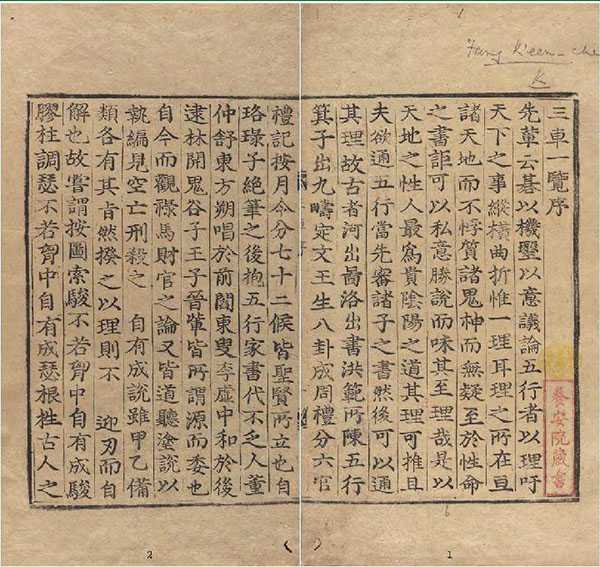 Fang
K
三車一覽序
先輩云碁以機毉以意議論五行者以理吁
天下之事縱橫曲折惟一理耳理之所在亘
諸天地而不悖質諸鬼神而無疑至於性命
之書詎可以私意勝說而味其至理哉是以
天地之性人最爲貴陰陽之道其理可推且
夫欲通五行當先審諸子之書然後可以通
其理故古者河出啚洛出書洪範所陳五行
箕子出九疇定文王生八卦成周禮分六官
養安院藏書
1
禮記按月令分七十二候皆聖賢所立也自
珞琭子絶筆之後抱五行家書代不乏人董
仲舒東方朔唱於前閻東叟李虛中和於後
逮林開鬼谷子王子晉輩皆所謂源而委也
自今而觀祿馬財官之論又皆道聽塗說以
執編見空亡刑殺之 自有成說雖甲乙備
類各有其肯然揆之以理則不 迎刃而自
解也故嘗謂按圖索駿不若胷中自有成駿
膠柱調瑟不若胷中自有成瑟根性古人之
2